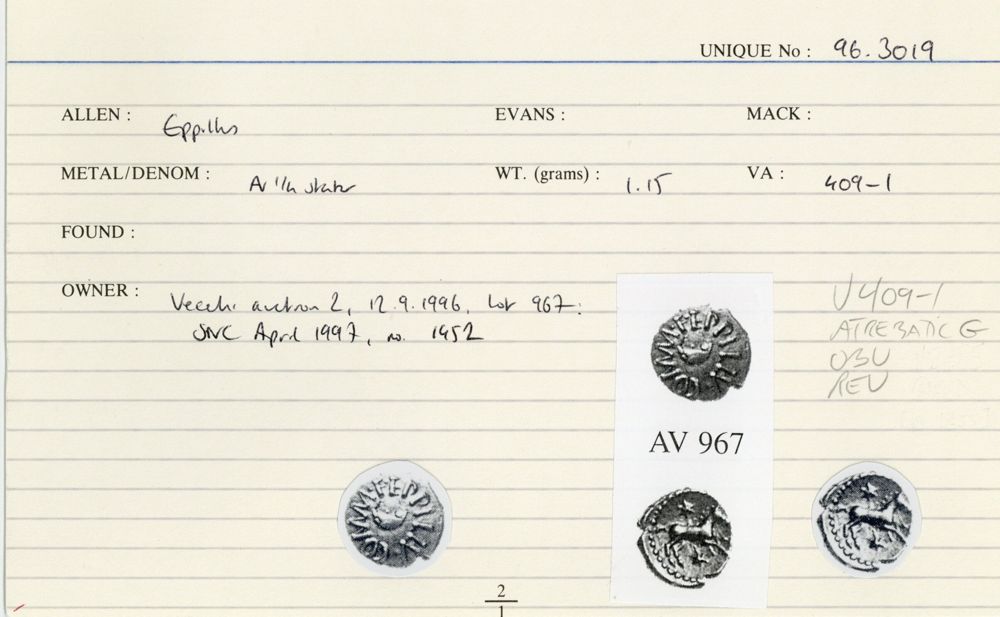 UNIQUE No : 96.3019
ALLEN : Eppillus EVANS : MACK :
METAL/DENOM : AV 1/4 stater WT. (grams) : 1.15 VA : 409-1
FOUND :
OWNER : Vecchi auction 2, 12.9.1996, lot 967:
SNC April 1997, no. 1452
V409-1
ATREBATIC G
OBV
REV
COMM F EPPILV
AV 967
2
1